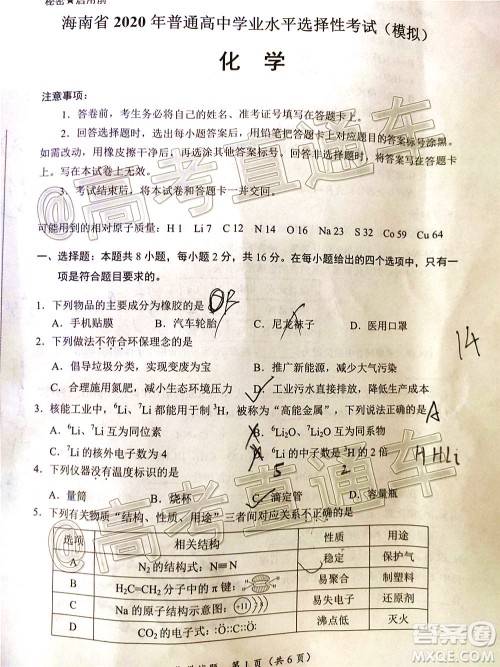 秘密★启用前
海南省 2020 年普通高中学业水平选择性考试（模拟）
化 学
注意事项：
1．答卷前，考生务必将自己的姓名、准考证号填写在答题卡上。
2．回答选择题时，选出每小题答案后，用铅笔把答题卡上对应题目的答案标号涂黑。
如需改动，用橡皮擦干净后，再选涂其他答案标号。回答非选择题时，将答案写在答题卡
上。写在本试卷上无效。
3．考试结束后，将本试卷和答题卡一并交回。
可能用到的相对原子质量：H 1 Li 7 C 12 N 14 O 16 S 32 Cr 52 Co 59 Cu 64
一、选择题：本题共 8 小题，每小题 2 分，共 16 分。在每小题给出的四个选项中，只有一
项是符合题目要求的。
1．下列物品的主要成分为橡胶的是 B
A．手机贴膜 B．汽车轮胎 C．尼龙袜子 D．医用口罩
2．下列做法不符合环保理念的是
14
A．倡导垃圾分类，实现变废为宝 B．推广新能源，减少大气污染
C．合理施用氮肥，减小生态环境压力 D．工业污水直接排放，降低成本
3．核能工业中，⁶Li、⁷Li 可用于制 ³H，被称为“高能金属”，下列说法正确的是 A
A．⁶Li、⁷Li 互为同位素 B．⁶Li₂O、⁷Li₂O 互为同分异构体
C．⁷Li 的核外电子数为 4 D．⁶Li 的中子数是 ³H 的 2 倍
H He Li
4．下列仪器没有温度标识的是 5 2
A．量筒 B．烧杯 C．滴定管 D．容量瓶
5．下列有关物质“结构、性质、用途”三者间对应关系不正确的是
选项 相关结构 性质 用途
A N₂ 的结构式：N≡N 稳定 保护气
B H₂C=CH₂ 分子中的 π 键： 易聚合 制塑料
C Na 的原子结构示意图：+11 易失电子 还原剂
D CO₂ 的电子式：:Ö:C:Ö: 沸点低 灭火
第 1 页（共 6 页）
@高考直通车
@高考直通车